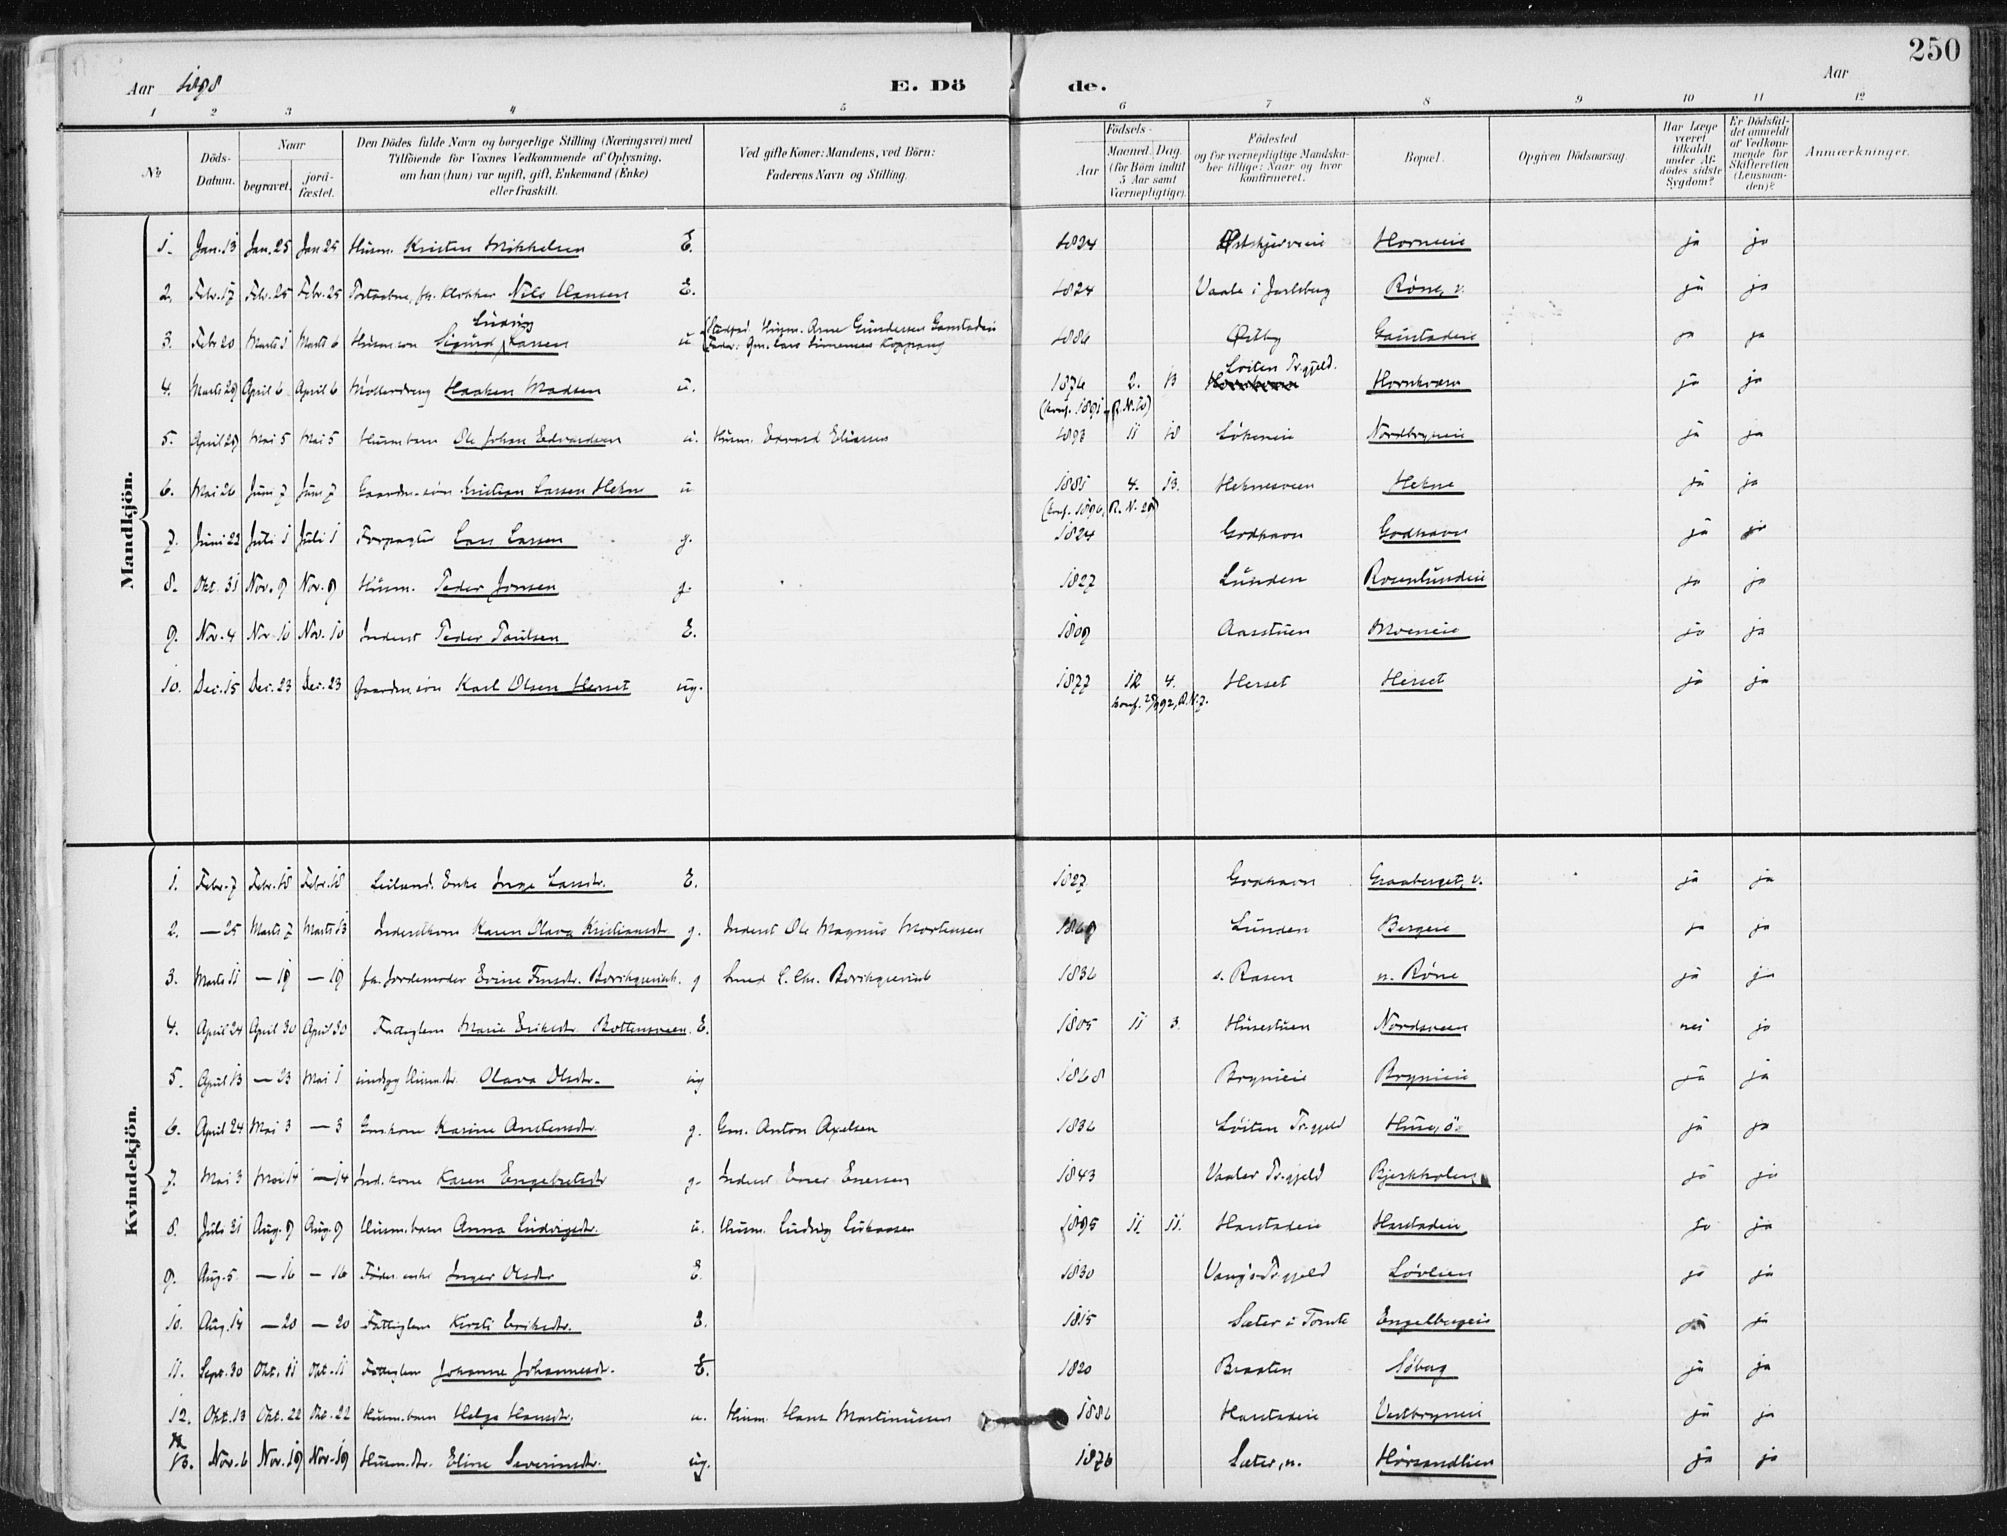 250
Aar 1898 E. Döde. Aar
1 2 3 4 5 6 7 8 9 10 11 12
No.
Döds-Datum.
Naar
begravet.
jordfæstet.
Den Dödes fulde Navn og borgerlige Stilling (Næringsvei) med
Tilföiende for Voxnes Vedkommende af Oplysning,
om han (hun) var ugift, gift, Enkemand (Enke)
eller fraskilt.
Ved gifte Koner: Mandens, ved Börn:
Faderens Navn og Stilling.
Födsels-
Aar
Maaned. Dag.
(for Börn indtil
5 Aar samt
Værnepligtige).
Födested
og for værnepligtige Mandskaber tillige: Naar og hvor
konfirmeret.
Bopæl.
Opgiven Dödsaarsag.
Har Læge
været
tilkaldt
under Afdödes sidste
Sygdom?
Er Dödsfaldet anmeldt
af Vedkommende for
Skifteretten
(Lensmanden)?
Anmærkninger.
Mandkjön.
1. Jan. 13 Jan. 25 Jan 25 Husm. Kristen Mikkelsen E. 1824 Horneie ja ja
2. Febr. 17 Febr. 25 Febr. 25 Nils Hansen E. 1824 Vaale i Jarlsberg Røne, v. ja ja
3. Febr 20 Marts 1 Marts 6 Husm.søn Sigurd Ludvig Larsen u 1886 Østby Gaustadeie ja ja
4. Marts 29 April 6 April 6 Møllerdreng Haaken Madsen u. 1876 2. 13 Løiten Pr.gjeld. Hornkvern ja ja
(konf. 1891, R. N. 10)
5. April 29 Mai 5 Mai 5 Husm.barn Ole Johan Edvardsen u. Husm. Edvard Eliassen 1893 11 18 Nordbryneie ja ja
6. Mai 26 Juni 7 Juni 7 Gaardm. søn Kristian Larsen Hekne u 1881 4. 13. Heknesveen Hekne ja ja
(konf. 1896, R. N. 20)
7. Juni 22 Juli 1 Juli 1 Forpagter Lars Larsen g. 1824 Godhavn Godhavn ja ja
8. Okt. 31 Nov. 9 Nov. 9 Husm. Peder Jonsen g. 1827 Lunden Rosenlundeie ja ja
9. Nov. 4 Nov. 10 Nov. 10 Inderst Peder Paulsen E. 1809 Aasstuen Moeneie ja ja
10. Dec. 15 Dec. 23 Dec. 23 Gaardm. søn Karl Olsen Herset ug. 1877 12 4. Herset Herset ja ja
Kvindekjön.
1. Febr. 7 Febr. 18 Febr. 18 Leilænd. Enke Inge Larsdtr. E. 1827 Godhavn Graaberget, v. ja ja
2. — 25 Marts 7 Marts 13 Inderstkone Karen Olava Kristiansdtr g. Inderst Ole Magnus Mortensen Lunden Bergeie ja ja
3. Marts 11 — 19 — 19 fh. Jordemoder Evine Finsdtr. Borchgrevink. g Smed C. Chr. Borchgrevink 1836 s. Rasen n. Røne ja ja
4. April 24 April 30 April 30 Fattiglem Marie Eriksdtr. Bottensveen. E. 1805 11 3. Husestuen Nordsveen nei ja
5. April 13 — 23 Mai 1 Husm.dtr. Olava Olsdtr. ug 1868 Brynieie Brynieie ja ja
6. April 24 Mai 3 — 3 Gm. kone Karine Amtensdtr. g. Gm. Anton Axelsen 1836 Løiten Pr.gjeld Huse, ø. ja ja
7. Mai 3 Mai 14 — 14 Ind. kone Karen Engebretsdtr g. Inderst Ener Enersen 1843 Vaaler Pr.gjeld Bjerkholen ja ja
8. Juli 31 Aug. 9 Aug. 9 Husm.barn Anna Ludvigsdtr. u. Husm. Ludvig Lukassen 1895 11 11. Harstadeie Harstadeie ja ja
9. Aug. 5 — 16 — 16 Føder. enke Inger Olsdtr E. 1830 Vangs Pr.gjeld Løvlien ja ja
10. Aug. 14 — 20 — 20 Fattiglem Kirsti Eriksdtr. E. 1815 Sæter i Tomte Engelbergeie ja ja
11. Sept. 30 Okt. 11 Okt. 11 Fattiglem Johanne Johannesdtr. E. 1820 Braaten Søberg ja ja
12. Okt. 13 Okt. 22 Okt. 22 Husm.barn Helga Hansdtr. u. Husm. Hans Martinusen 1886 Harstadeie Vestbryneie ja ja
13. Nov. 6 Nov. 19 Nov. 19 Husm.dtr. Eline Severinsdtr. ug. 1876 Sæter, n. Hørsandlien ja ja